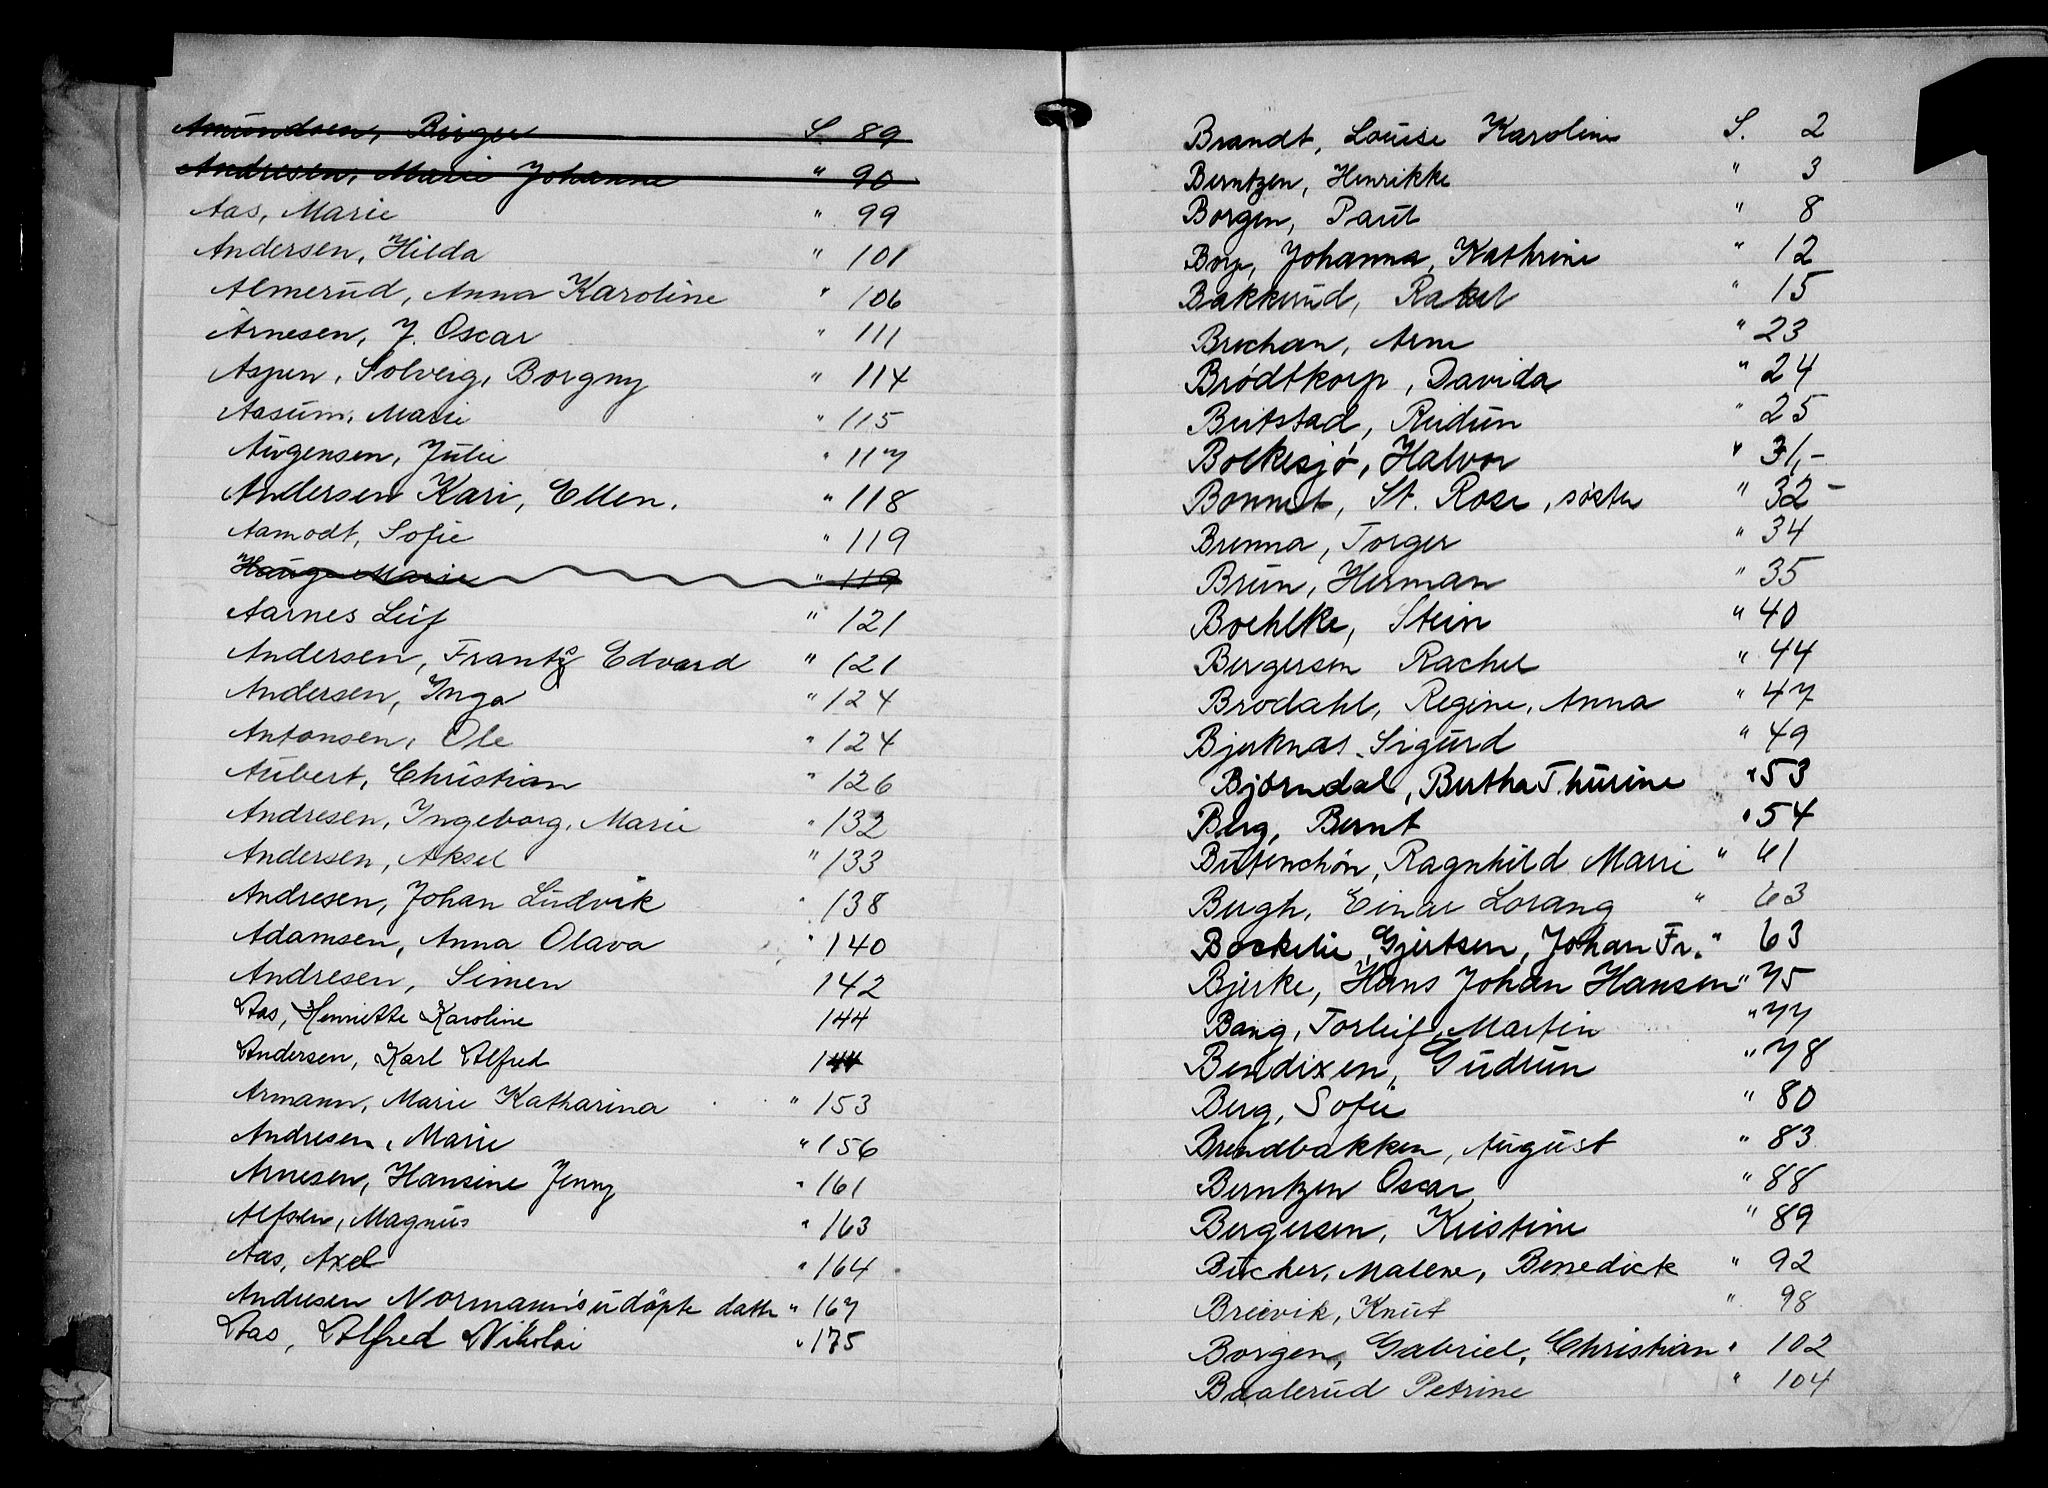 Amundsen, Birger S. 89
Andresen, Marie Johanne " 90
Aas, Marie " 99
Andersen, Hilda " 101
Almerud, Anna Karoline " 106
Arnesen, J. Oscar " 111
Aspen, Solveig, Borgny " 114
Aasum, Marie " 115
Augensen, Julie " 117
Andersen Kari, Ellen. " 118
Aamodt, Sofie " 119
Hauge Marie " 119
Aarnes Leif " 121
Andersen, Frantz Edvard " 121
Andersen, Inga " 124
Antonsen, Ole " 124
Aubert, Christian " 126
Andresen, Ingeborg, Marie " 132
Andersen, Aksel " 133
Andresen, Johan Ludvik " 138
Adamsen, Anna Olava " 140
Andresen, Simen 142
Aas, Henriette Karoline 144
Andersen, Karl Alfred 144
Armann, Marie Katharina " 153
Andresen, Marie " 156
Arnesen, Hansine Jenny " 161
Alfsen, Magnus " 163
Aas, Axel " 164
Andresen Normann's udöpte datter " 167
Aas, Alfred Nikolai " 175
Brandt, Louise Karoline S. 2
Berntzen, Henrikke " 3
Borgen, Paul " 8
Borp, Johanna, Kathrine " 12
Bakkerud, Rakel " 15
Brechan, Arne " 23
Brødtkorp, Davida " 24
Beitstad, Reidun " 25
Bolkesjø, Halvor " 31,-
Bonnet, St. Rose, søster " 32 -
Brenna, Torger " 34
Brun, Herman " 35
Boehlke, Stein " 40
Bergersen Rachel " 44
Brodahl, Regine, Anna " 47
Bjerknæs Sigurd " 49
Björndal, Bertha Thurine " 53
Berg, Bernt " 54
Butenschön, Ragnhild Marie " 61
Bergh, Einar Lorang " 63
Bockelie, Gjertsen, Johan Fr. " 63
Bjerke, Hans Johan Hansen " 75
Bang, Torleif, Martin " 77
Bendixen, Gudrun " 78
Berg, Sofie " 80
Brendbakken, August " 83
Berntzen Oscar, " 88
Bergersen, Kristine " 89
Bücher, Malene, Benedick " 92
Breivik, Knut " 98
Borgen, Gabriel, Christian " 102
Baalerud Petrine " 104